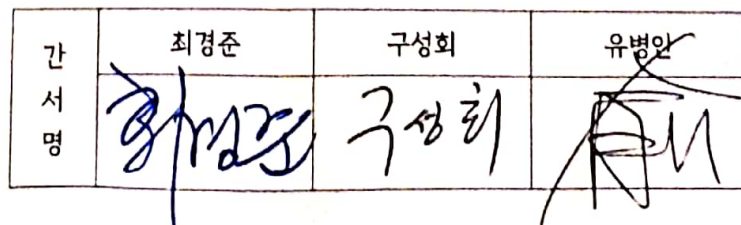 간서명 최경준 구성회 유병인
최경준 구성회